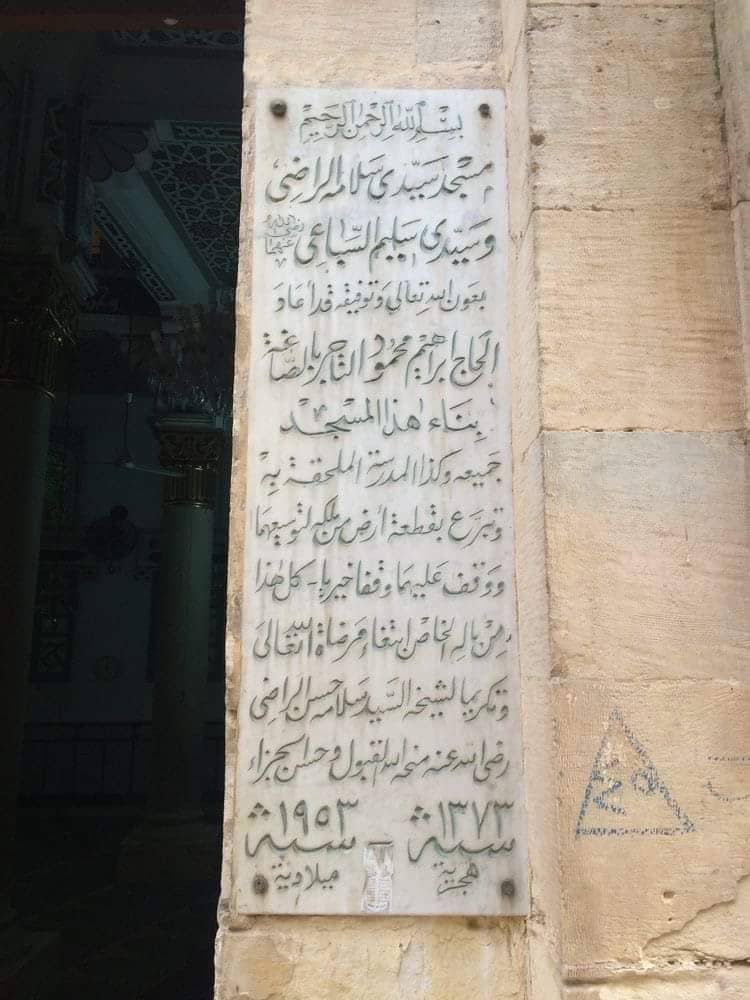 بسم الله الرحمن الرحيم
مسجد سيدى سلامه الراضى
وسيدى سليم السباعى رضى الله عنهما
بعون الله تعالى وتوفيقه قد اعاد
الحاج ابراهيم محمود التاجر بالصاغة
بناء هذا المسجد
جميعه وكذا المدرسة الملحقة به
وتبرع بقطعة أرض من ملكه لتوسيعهما
ووقف عليهما وقفا خيريا - كل هذا
من ماله الخاص ابتغاء مرضاة الله تعالى
وتكريما لشيخه السيد سلامه حسن الراضى
رضى الله عنه منحه الله القبول وحسن الجزاء
سنة ١٣٧٣ - سنة ١٩٥٣
هجرية ميلادية